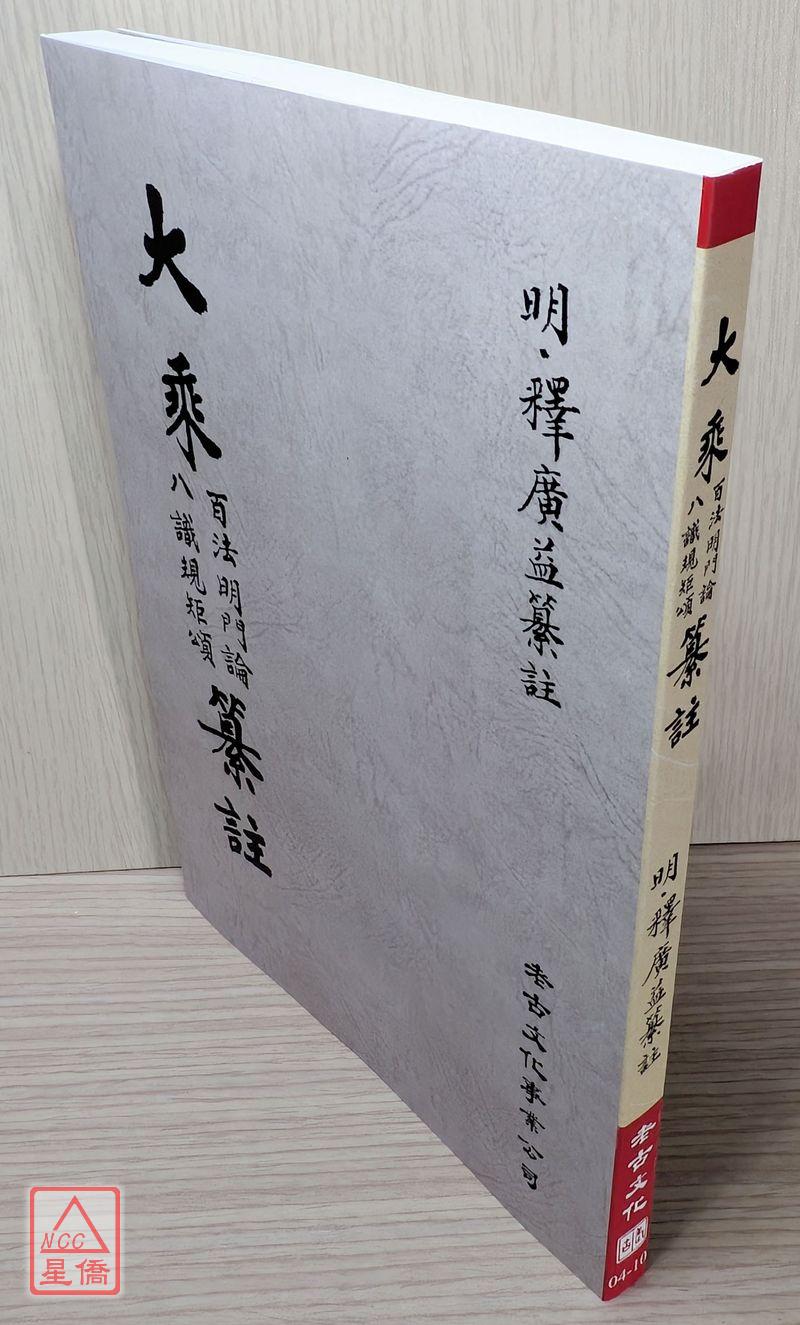 明．釋廣益纂註
大乘百法明門論八識規矩頌纂註
老古文化事業公司
大乘百法明門論八識規矩頌纂註
明．釋廣益纂註
老古文化
04-10
NCC
星僑